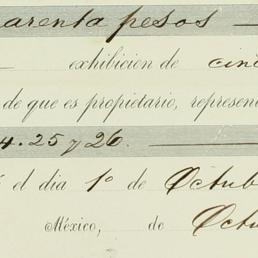 arenta pesos
exhibicion de cin
de que es propietario, represen
4. 25 y 26.
el dia 1º de Octub
México, de Octu